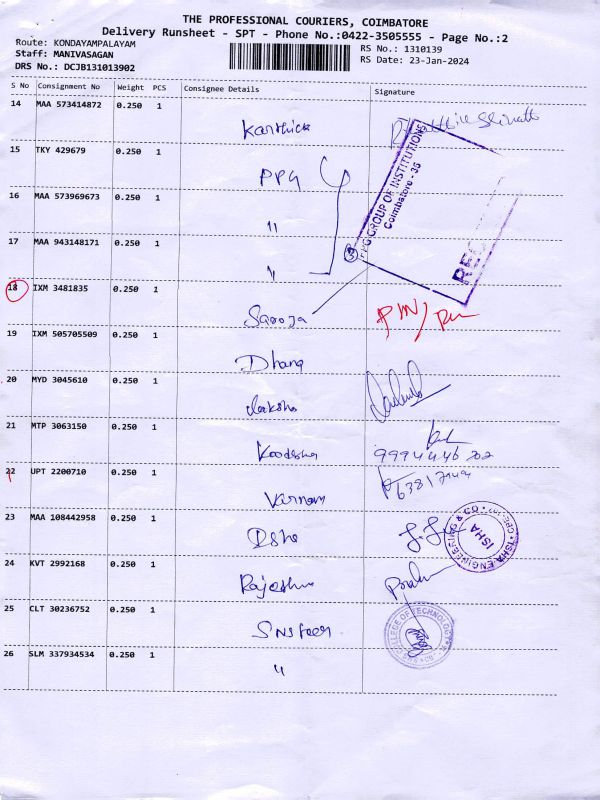 THE PROFESSIONAL COURIERS, COIMBATORE
Delivery Runsheet - SPT - Phone No.:0422-3505555 - Page No.:2
Route: KONDAYAMPALAYAM
Staff: MANIVASAGAN
DRS No.: DCJB131013902
RS No.: 1310139
RS Date: 23-Jan-2024
S No Consignment No Weight PCS Consignee Details Signature
14 MAA 573414872 0.250 1
Karthick
15 TKY 429679 0.250 1
PPG
16 MAA 573969673 0.250 1
"
17 MAA 943148171 0.250 1
"
GROUP OF INSTITUTIONS
Coimbatore - 35
REC
18 IXM 3481835 0.250 1
Saroja
19 IXM 505705509 0.250 1
Dhana
20 MYD 3045610 0.250 1
21 MTP 3063150 0.250 1
22 UPT 2200710 0.250 1
Varnam
23 MAA 108442958 0.250 1
Isha
ISHA
24 KVT 2992168 0.250 1
25 CLT 30236752 0.250 1
COLLEGE OF TECHNOLOGY
26 SLM 337934534 0.250 1
"